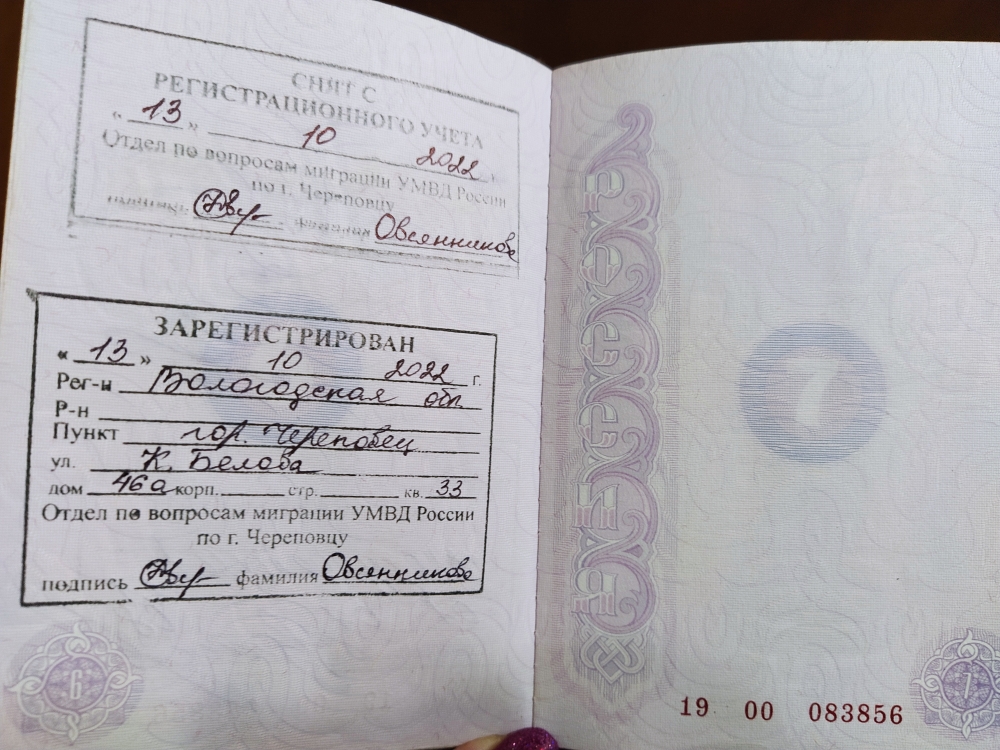 СНЯТ С
РЕГИСТРАЦИОННОГО УЧЕТА
« 13 » 10 2022 г.
Отдел по вопросам миграции УМВД России
по г. Череповцу
подпись фамилия Овсянникова
ЗАРЕГИСТРИРОВАН
« 13 » 10 2022 г.
Рег-н Вологодская обл
Р-н
Пункт гор. Череповец
ул. К. Белова
дом 46а корп. стр. кв. 33
Отдел по вопросам миграции УМВД России
по г. Череповцу
подпись фамилия Овсянникова
6
РОССИЯ
7
7
19 00 083856